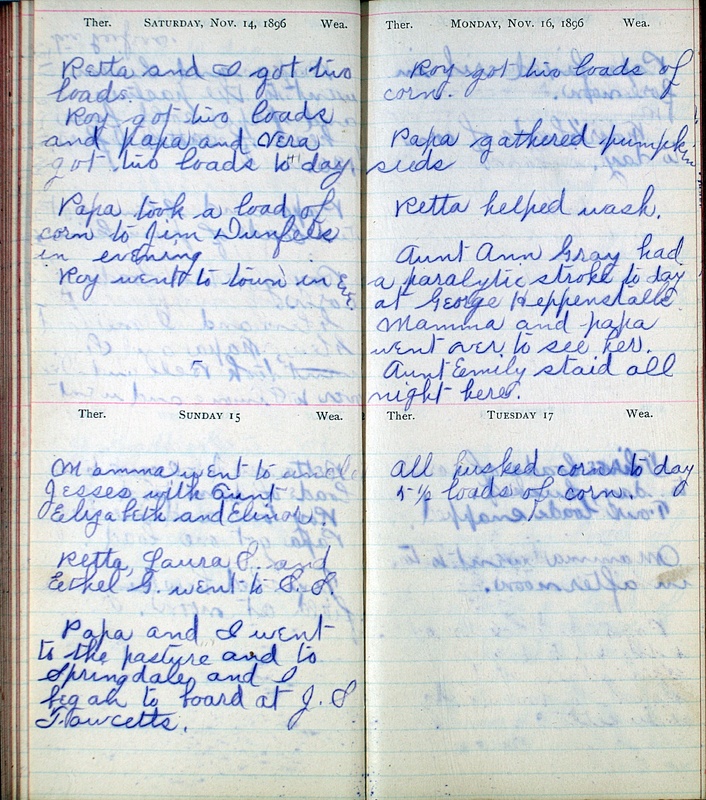 Ther. SATURDAY, NOV. 14, 1896 Wea.
Retta and I got two
loads.
Roy got two loads
and papa and Vera
got two loads to day
Papa took a load of
corn to Jim Dunfees
in evening
Roy went to town in Eve
5
Ther. SUNDAY 15 Wea.
Mamma went to uncle
Jesses with Aunt
Elizabeth and Elinor.
Retta, Laura P. and
Ethel G. went to S. S.
Papa and I went
to the pasture and to
Springdale and I
began to board at J. S
Fawcetts.
Ther. MONDAY, NOV. 16, 1896 Wea.
Roy got two loads of
corn.
Papa gathered pumpkin
seeds
Retta helped wash.
Aunt Ann Gray had
a paralytic stroke to day
at George Heppenstalls
Mamma and papa
went over to see her.
Aunt Emily staid all
night here.
Ther. TUESDAY 17 Wea.
All husked corn to day
5 1/2 loads of corn.